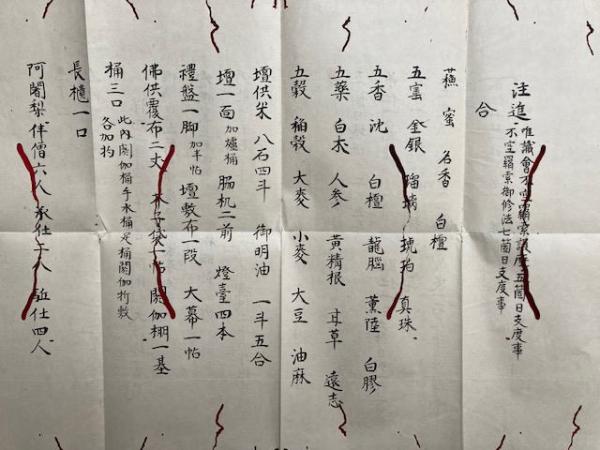 注進 唯識會不空羂索護摩五箇日支度事
不空羂索御修法七箇日支度事
合
蘓 蜜 名香 白檀
五寳 金 銀 瑠璃 琥珀 真珠
五香 沈 白檀 龍脳 薫陸 白膠
五藥 白朮 人参 黄精根 甘草 遠志
五穀 稲穀 大麥 小麥 大豆 油麻
壇供米 八石四斗 御明油 一斗五合
壇一面 加爐桶 脇机二前 燈臺四本
禮盤一脚 加半帖 壇敷布一段 大幕一帖
佛供覆布二丈 帖 閼伽棚一基
桶三口 此内閼伽桶手水桶足桶閼伽桁敷
各加杓
長櫃一口
阿闍梨 伴僧六人 承仕 人 駈仕四人